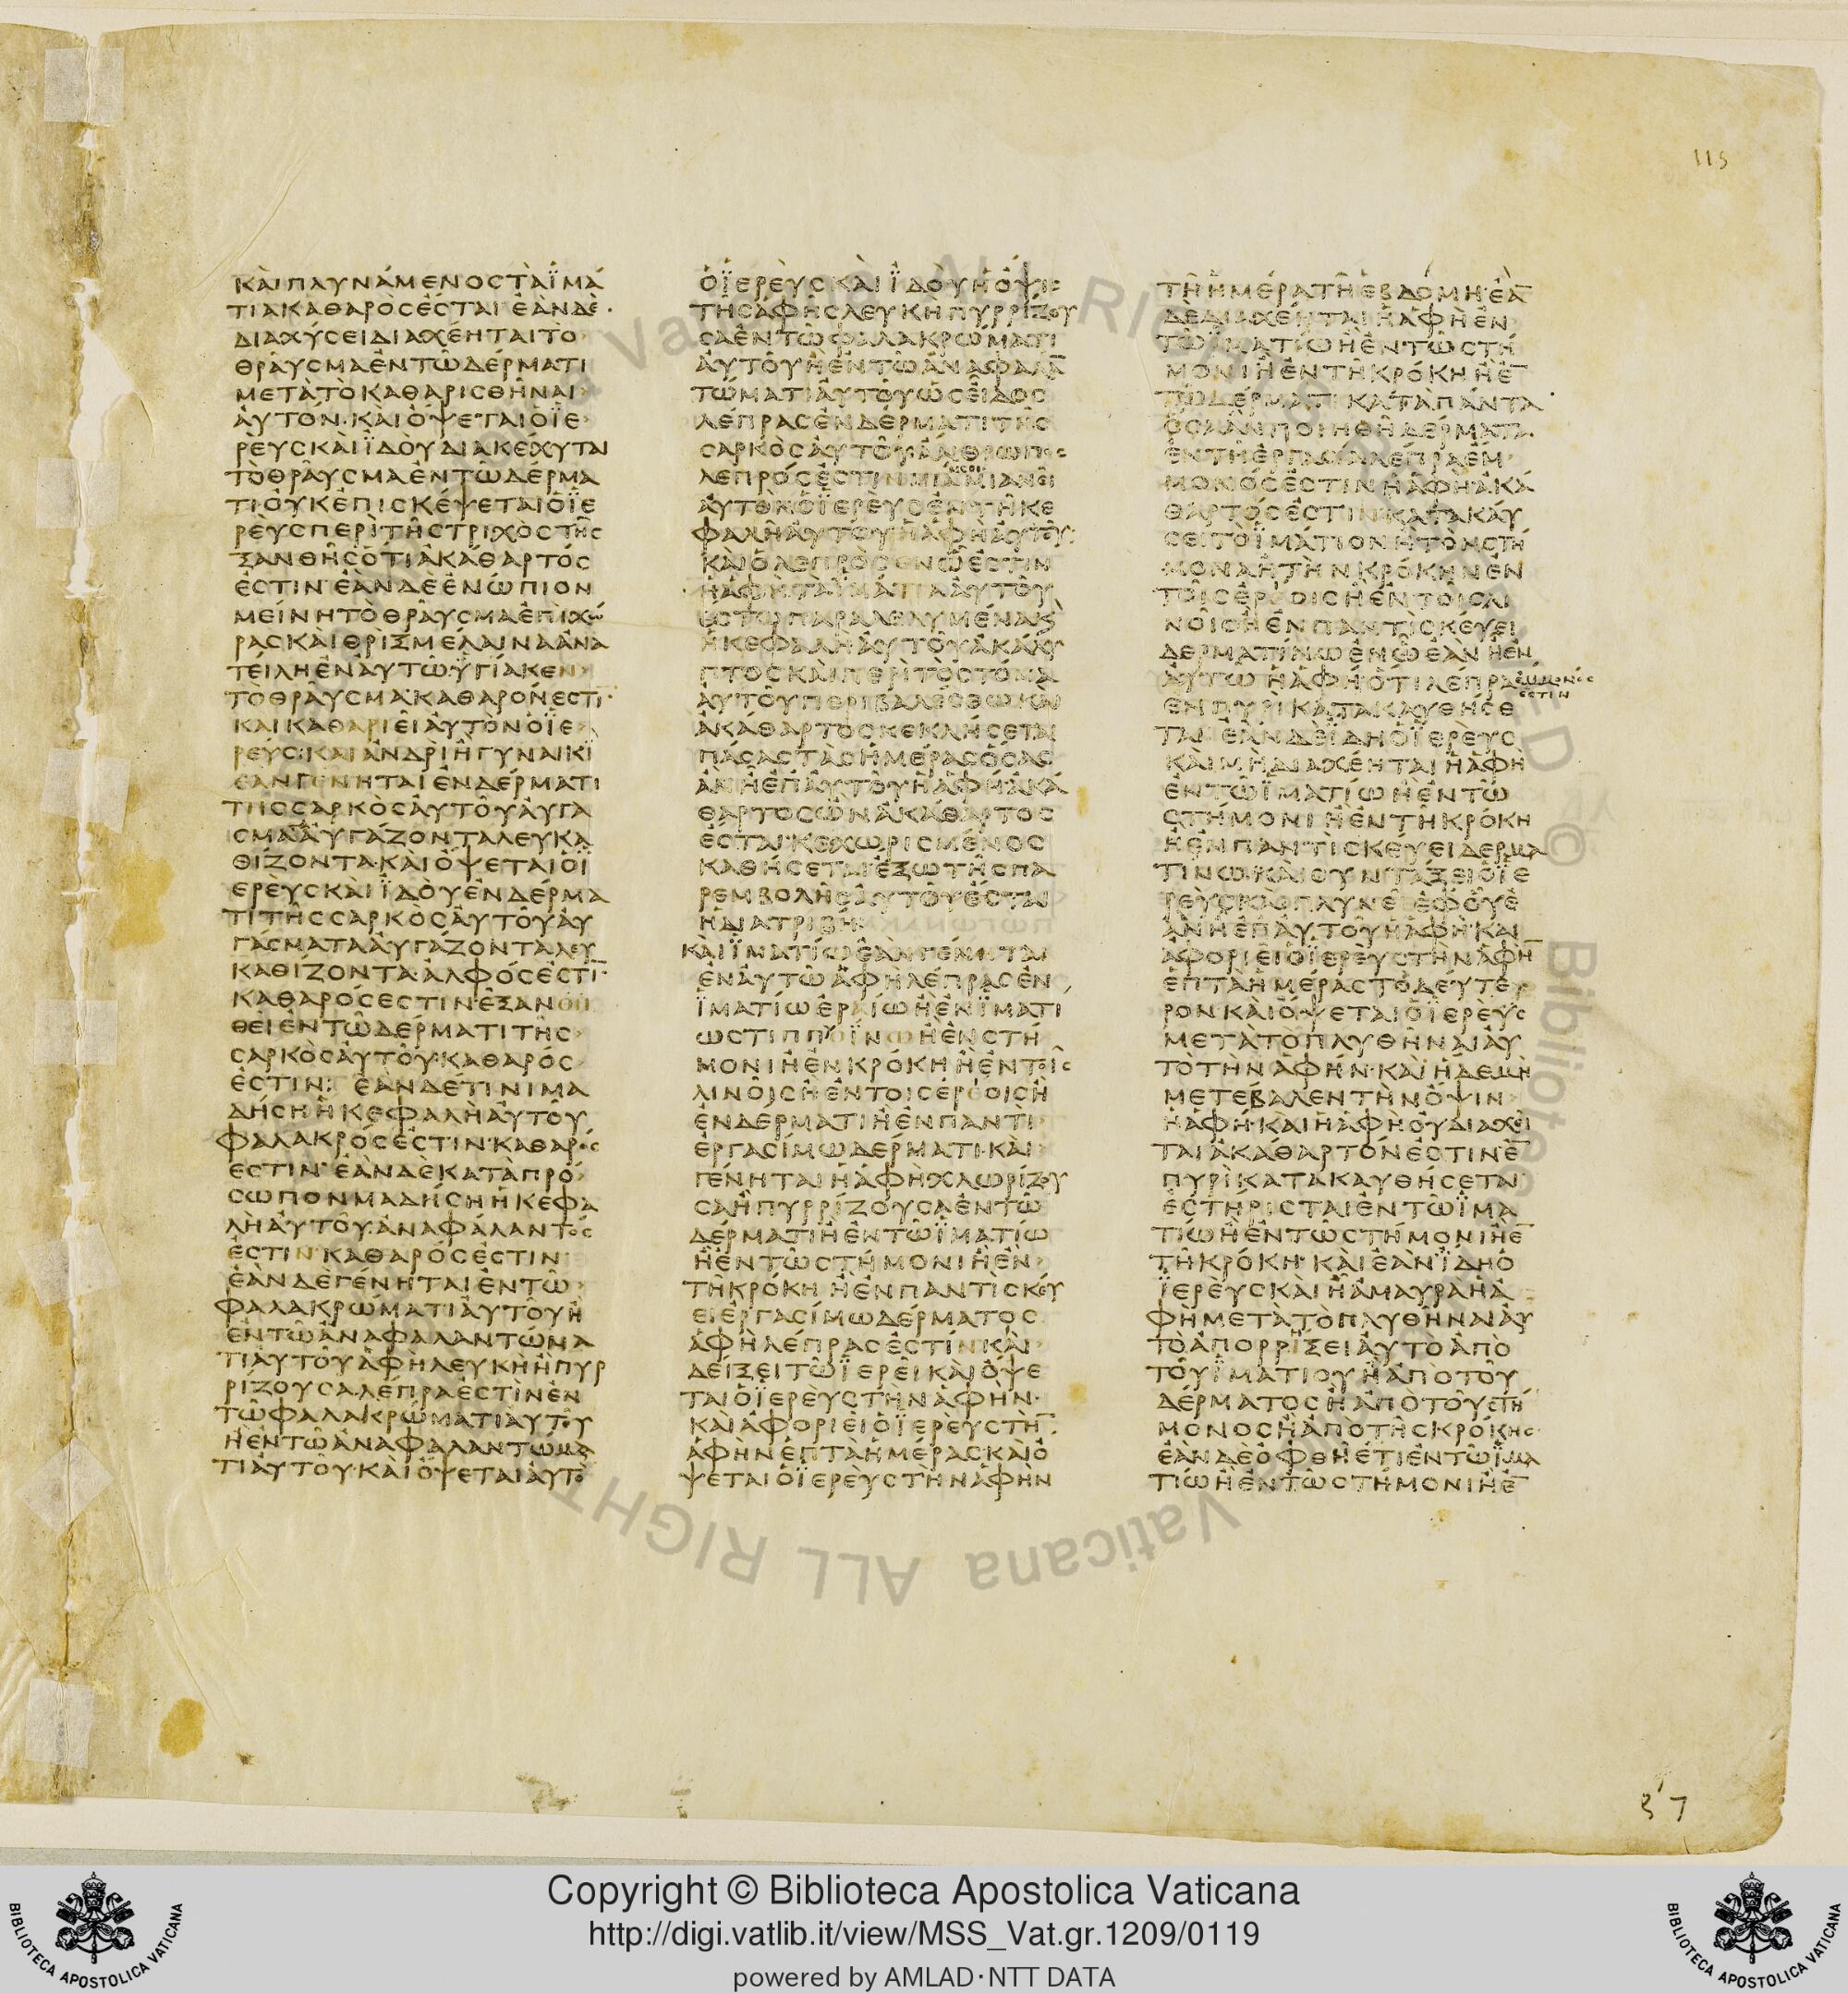 115
ΚΑΙΠΛΥΝΑΜΕΝΟΣΤΑΪΜΑ
ΤΙΑΚΑΘΑΡΟΣΕΣΤΑΙΕΑΝΔΕ
ΔΙΑΧΥΣΕΙΔΙΑΧΕΗΤΑΙΤΟ
ΘΡΑΥΣΜΑΕΝΤΩΔΕΡΜΑΤΙ
ΜΕΤΑΤΟΚΑΘΑΡΙΣΘΗΝΑΙ
ΑΥΤΟΝ·ΚΑΙΟΨΕΤΑΙΟΪΕ
ΡΕΥΣΚΑΙΪΔΟΥΔΙΑΚΕΧΥΤΑΙ
ΤΟΘΡΑΥΣΜΑΕΝΤΩΔΕΡΜΑ
ΤΙΟΥΚΕΠΙΣΚΕΨΕΤΑΙΟΪΕ
ΡΕΥΣΠΕΡΙΤΗΣΤΡΙΧΟΣΤΗΣ
ΞΑΝΘΗΣΟΤΙΑΚΑΘΑΡΤΟΣ
ΕΣΤΙΝ·ΕΑΝΔΕΕΝΩΠΙΟΝ
ΜΕΙΝΗΤΟΘΡΑΥΣΜΑΕΠΙΧΩ
ΡΑΣΚΑΙΘΡΙΞΜΕΛΑΙΝΑΑΝΑ
ΤΕΙΛΗΕΝΑΥΤΩΫΓΙΑΚΕΝ
ΤΟΘΡΑΥΣΜΑ·ΚΑΘΑΡΟΝΕΣΤΙ
ΚΑΙΚΑΘΑΡΙΕΙΑΥΤΟΝΟΪΕ
ΡΕΥΣ·ΚΑΙΑΝΔΡΙΗΓΥΝΑΙΚΙ
ΕΑΝΓΕΝΗΤΑΙΕΝΔΕΡΜΑΤΙ
ΤΗΣΣΑΡΚΟΣΑΥΤΟΥΑΥΓΑ
ΣΜΑΤΑΑΥΓΑΖΟΝΤΑΛΕΥΚΑ
ΘΙΖΟΝΤΑ·ΚΑΙΟΨΕΤΑΙΟΪ
ΕΡΕΥΣΚΑΙΪΔΟΥΕΝΔΕΡΜΑ
ΤΙΤΗΣΣΑΡΚΟΣΑΥΤΟΥΑΥ
ΓΑΣΜΑΤΑΑΥΓΑΖΟΝΤΑΛΕΥ
ΚΑΘΙΖΟΝΤΑ·ΑΛΦΟΣΕΣΤΙ̅
ΚΑΘΑΡΟΣΕΣΤΙΝ·ΕΞΑΝ
ΘΕΙΕΝΤΩΔΕΡΜΑΤΙΤΗΣ
ΣΑΡΚΟΣΑΥΤΟΥ·ΚΑΘΑΡΟΣ
ΕΣΤΙΝ: ΕΑΝΔΕΤΙΝΙΜΑ
ΔΗΣΗΗΚΕΦΑΛΗΑΥΤΟΥ
ΦΑΛΑΚΡΟΣΕΣΤΙΝ·ΚΑΘΑΡΟΣ
ΕΣΤΙΝ·ΕΑΝΔΕΚΑΤΑΠΡΟ
ΣΩΠΟΝΜΑΔΗΣΗΗΚΕΦΑ
ΛΗΑΥΤΟΥ·ΑΝΑΦΑΛΑΝΤΟΣ
ΕΣΤΙΝ·ΚΑΘΑΡΟΣΕΣΤΙΝ
ΕΑΝΔΕΓΕΝΗΤΑΙΕΝΤΩ
ΦΑΛΑΚΡΩΜΑΤΙΑΥΤΟΥΗ
ΕΝΤΩΑΝΑΦΑΛΑΝΤΩΜΑ
ΤΙΑΥΤΟΥΑΦΗΛΕΥΚΗΗΠΥΡ
ΡΙΖΟΥΣΑΛΕΠΡΑΕΣΤΙΝΕΝ
ΤΩΦΑΛΑΚΡΩΜΑΤΙΑΥΤΟΥ
ΗΕΝΤΩΑΝΑΦΑΛΑΝΤΩΜΑ
ΤΙΑΥΤΟΥ·ΚΑΙΟΨΕΤΑΙΑΥΤΟ̅
ΟΪΕΡΕΥΣΚΑΙΪΔΟΥΗΟΨΙΣ
ΤΗΣΑΦΗΣΛΕΥΚΗΠΥΡΡΙΖΟΥ
ΣΑΕΝΤΩΦΑΛΑΚΡΩΜΑΤΙ
ΑΥΤΟΥΗΕΝΤΩΑΝΑΦΑΛΑ̅
ΤΩΜΑΤΙΑΥΤΟΥΩΣΕΙΔΟΣ
ΛΕΠΡΑΣΕΝΔΕΡΜΑΤΙΤΗΣ
ΣΑΡΚΟΣΑΥΤΟΥΑΝΘΡΩΠΟΣ
ΛΕΠΡΟΣΕΣΤΙΝΜΙΑΝΣΕΙΜΙΑΝΕΙ
ΑΥΤΟΝΟΪΕΡΕΥΣΕΝΤΗΚΕ
ΦΑΛΗΑΥΤΟΥΗΑΦΗΑΥΤΟΥ
ΚΑΙΟΛΕΠΡΟΣΕΝΩΕΣΤΙΝ
ΗΑΦΗΤΑΪΜΑΤΙΑΑΥΤΟΥ
ΕΣΤΩΠΑΡΑΛΕΛΥΜΕΝΑΚ
ΗΚΕΦΑΛΗΑΥΤΟΥΑΚΑΛΥ
ΠΤΟΣΚΑΙΠΕΡΙΤΟΣΤΟΜΑ
ΑΥΤΟΥΠΕΡΙΒΑΛΕΣΘΩΚΑΙ
ΑΚΑΘΑΡΤΟΣΚΕΚΛΗΣΕΤΑΙ
ΠΑΣΑΣΤΑΣΗΜΕΡΑΣΟΣΑΣ
ΑΝΗΕΠΑΥΤΟΥΗΑΦΗΑΚΑ
ΘΑΡΤΟΣΩΝΑΚΑΘΑΡΤΟΣ
ΕΣΤΑΙ·ΚΕΧΩΡΙΣΜΕΝΟΣ
ΚΑΘΗΣΕΤΑΙΕΞΩΤΗΣΠΑ
ΡΕΜΒΟΛΗΣΑΥΤΟΥΕΣΤΑΙ
ΗΔΙΑΤΡΙΒΗ
ΚΑΙΪΜΑΤΙΩΕΑΝΓΕΝΗΤΑΙ
ΕΝΑΥΤΩΑΦΗΛΕΠΡΑΣΕΝ
ΪΜΑΤΙΩΕΡΑΙΩΗΕΝΪΜΑΤΙ
ΩΣΤΙΠΠΥΪΝΩΗΕΝΣΤΗ
ΜΟΝΙΗΕΝΚΡΟΚΗΗΕΝΤΟΙΣ
ΛΙΝΟΙΣΗΕΝΤΟΙΣΕΡΕΟΙΣΗ
ΕΝΔΕΡΜΑΤΙΗΕΝΠΑΝΤΙ
ΕΡΓΑΣΙΜΩΔΕΡΜΑΤΙ·ΚΑΙ
ΓΕΝΗΤΑΙΗΑΦΗΧΛΩΡΙΖΟΥ
ΣΑΗΠΥΡΡΙΖΟΥΣΑΕΝΤΩ
ΔΕΡΜΑΤΙΗΕΝΤΩΪΜΑΤΙΩ
ΗΕΝΤΩΣΤΗΜΟΝΙΗΕΝ
ΤΗΚΡΟΚΗΗΕΝΠΑΝΤΙΣΚΕΥ
ΕΙΕΡΓΑΣΙΜΩΔΕΡΜΑΤΟΣ
ΑΦΗΛΕΠΡΑΣΕΣΤΙΝΚΑΙ
ΔΕΙΞΕΙΤΩΪΕΡΕΙΚΑΙΟΨΕ
ΤΑΙΟΪΕΡΕΥΣΤΗΝΑΦΗΝ·
ΚΑΙΑΦΟΡΙΕΙΟΪΕΡΕΥΣΤΗ̅
ΑΦΗΝΕΠΤΑΗΜΕΡΑΣ·ΚΑΙΟ
ΨΕΤΑΙΟΪΕΡΕΥΣΤΗΝΑΦΗΝ
ΤΗΗΜΕΡΑΤΗΕΒΔΟΜΗ·ΕΑ̅
ΔΕΔΙΑΧΕΗΤΑΙΗΑΦΗΕΝ
ΤΩΪΜΑΤΙΩΗΕΝΤΩΣΤΗ
ΜΟΝΙΗΕΝΤΗΚΡΟΚΗΗΕ̅
ΤΩΔΕΡΜΑΤΙΚΑΤΑΠΑΝΤΑ
ΟΣΑΑΝΠΟΙΗΘΗΔΕΡΜΑΤΑ
ΕΝΤΗΕΡΓΑΣΙΑΛΕΠΡΑΕΜ
ΜΟΝΟΣΕΣΤΙΝΗΑΦΗΑΚΑ
ΘΑΡΤΟΣΕΣΤΙΝΚΑΤΑΚΑΥ
ΣΕΙΤΟΪΜΑΤΙΟΝΗΤΟΝΣΤΗ
ΜΟΝΑΗΤΗΝΚΡΟΚΗΝΕΝ
ΤΟΙΣΕΡΕΟΙΣΗΕΝΤΟΙΣΛΙ
ΝΟΙΣΗΕΝΠΑΝΤΙΣΚΕΥΕΙ
ΔΕΡΜΑΤΙΝΩΕΝΩΕΑΝΗΕΝ
ΑΥΤΩΗΑΦΗΟΤΙΛΕΠΡΑΕΜΜΟΝΟΣ
ΕΣΤΙΝ
ΕΝΠΥΡΙΚΑΤΑΚΑΥΘΗΣΕ
ΤΑΙ ΕΑΝΔΕΪΔΗΟΪΕΡΕΥΣ
ΚΑΙΜΗΔΙΑΧΕΗΤΑΙΗΑΦΗ
ΕΝΤΩΪΜΑΤΙΩΗΕΝΤΩ
ΣΤΗΜΟΝΙΗΕΝΤΗΚΡΟΚΗ
ΗΕΝΠΑΝΤΙΣΚΕΥΕΙΔΕΡΜΑ
ΤΙΝΩ·ΚΑΙΣΥΝΤΑΞΕΙΟΪΕ
ΡΕΥΣΚΑΙΠΛΥΝΕΙΕΦΟΥΕ
ΑΝΗΕΠΑΥΤΟΥΗΑΦΗ·ΚΑΙ
ΑΦΟΡΙΕΙΟΪΕΡΕΥΣΤΗΝΑΦΗ̅
ΕΠΤΑΗΜΕΡΑΣΤΟΔΕΥΤΕ
ΡΟΝ·ΚΑΙΟΨΕΤΑΙΟΪΕΡΕΥΣ
ΜΕΤΑΤΟΠΛΥΘΗΝΑΙΑΥ
ΤΟΤΗΝΑΦΗΝ·ΚΑΙΗΔΕΜΗ
ΜΕΤΕΒΑΛΕΝΤΗΝΟΨΙΝ
ΗΑΦΗ·ΚΑΙΗΑΦΗΟΥΔΙΑΧΕΙ
ΤΑΙΑΚΑΘΑΡΤΟΝΕΣΤΙΝ·Ε̅
ΠΥΡΙΚΑΤΑΚΑΥΘΗΣΕΤΑΙ
ΕΣΤΗΡΙΣΤΑΙΕΝΤΩΪΜΑ
ΤΙΩΗΕΝΤΩΣΤΗΜΟΝΙΗΕ̅
ΤΗΚΡΟΚΗ·ΚΑΙΕΑΝΪΔΗΟ
ΪΕΡΕΥΣΚΑΙΗΑΜΑΥΡΑΗΑ
ΦΗΜΕΤΑΤΟΠΛΥΘΗΝΑΙΑΥ
ΤΟΑΠΟΡΡΗΞΕΙΑΥΤΟΑΠΟ
ΤΟΥΪΜΑΤΙΟΥΗΑΠΟΤΟΥ
ΔΕΡΜΑΤΟΣΗΑΠΟΤΟΥΣΤΗ
ΜΟΝΟΣΗΑΠΟΤΗΣΚΡΟΚΗΣ
ΕΑΝΔΕΟΦΘΗΕΤΙΕΝΤΩΪΜΑ
ΤΙΩΗΕΝΤΩΣΤΗΜΟΝΙΗΕ̅
Copyright © Biblioteca Apostolica Vaticana
http://digi.vatlib.it/view/MSS_Vat.gr.1209/0119
powered by AMLAD·NTT DATA
BIBLIOTECA APOSTOLICA VATICANA
BIBLIOTECA APOSTOLICA VATICANA